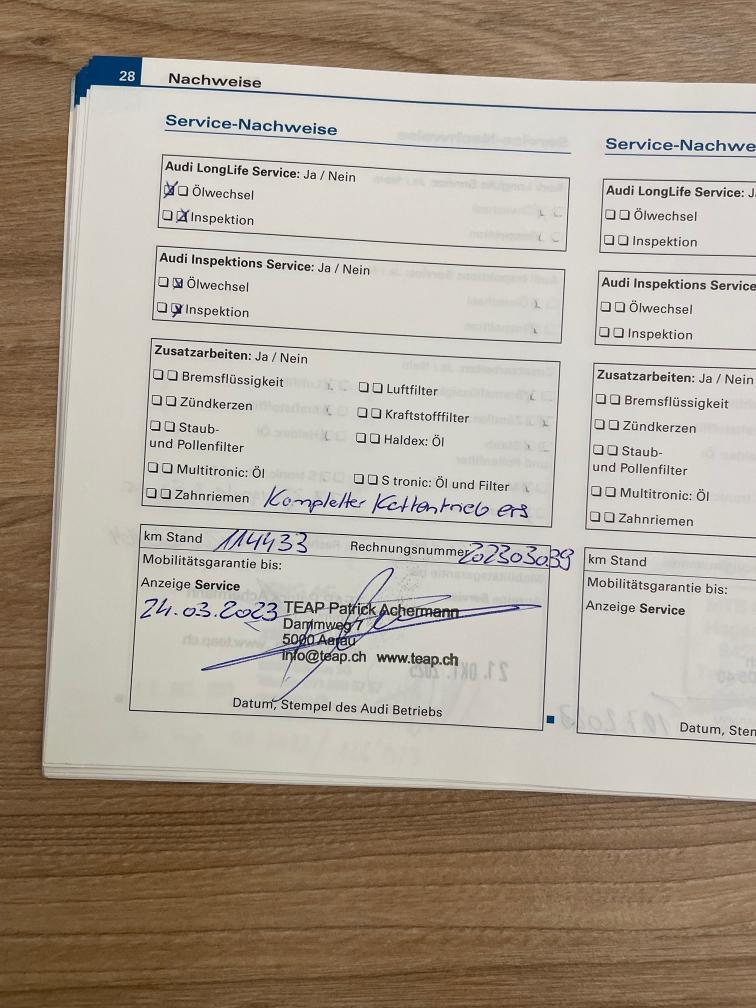 28 Nachweise
Service-Nachweise
Audi LongLife Service: Ja / Nein
Ölwechsel
Inspektion
Audi Inspektions Service: Ja / Nein
Ölwechsel
Inspektion
Zusatzarbeiten: Ja / Nein
Bremsflüssigkeit
Luftfilter
Zündkerzen
Kraftstofffilter
Staub-
und Pollenfilter
Haldex: Öl
Multitronic: Öl
S tronic: Öl und Filter
Zahnriemen Kompletter Kettentrieb ers
km Stand 114433 Rechnungsnummer 202303039
Mobilitätsgarantie bis:
Anzeige Service
24.03.2023 TEAP Patrick Achermann
Dammweg 7
5000 Aarau
info@teap.ch www.teap.ch
Datum, Stempel des Audi Betriebs
Service-Nachwe
Audi LongLife Service: J
Ölwechsel
Inspektion
Audi Inspektions Service
Ölwechsel
Inspektion
Zusatzarbeiten: Ja / Nein
Bremsflüssigkeit
Zündkerzen
Staub-
und Pollenfilter
Multitronic: Öl
Zahnriemen
km Stand
Mobilitätsgarantie bis:
Anzeige Service
Datum, Sten